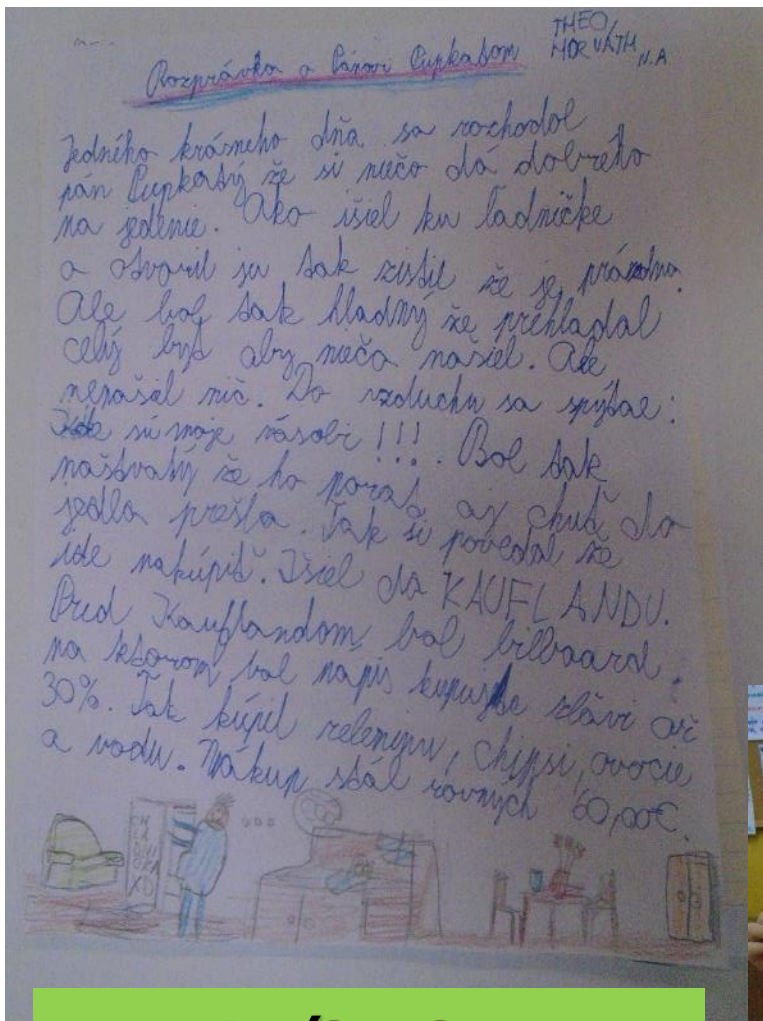 THEO
HORVÁTH
IV.A
Rozprávka o Pánovi Cupkatom
Jedného krásneho dňa sa rozhodol
pán Cupkatý že si niečo dá dobrého
na jedenie. Ako išiel ku ladničke
a otvoril ju tak zistil že je prázdna.
Ale bol tak hladný že prehladal
celý byt aby niečo našiel. Ale
nenašiel nič. Do vzduchu sa spýtal:
Kde sú moje zásobi!!!. Bol tak
naštvatý že ho poraz aj chuť do
jedla prešla. Tak si povedal že
ide nakúpiť. Išiel do KAUFLANDU.
Pred Kauflandom bol bilboard.
na ktorom bol napis kupujte zlavi až
30%. Tak kúpil zeleninu, chipsi, ovocie
a vodu. Nákup stál rovných 60,00€.
...